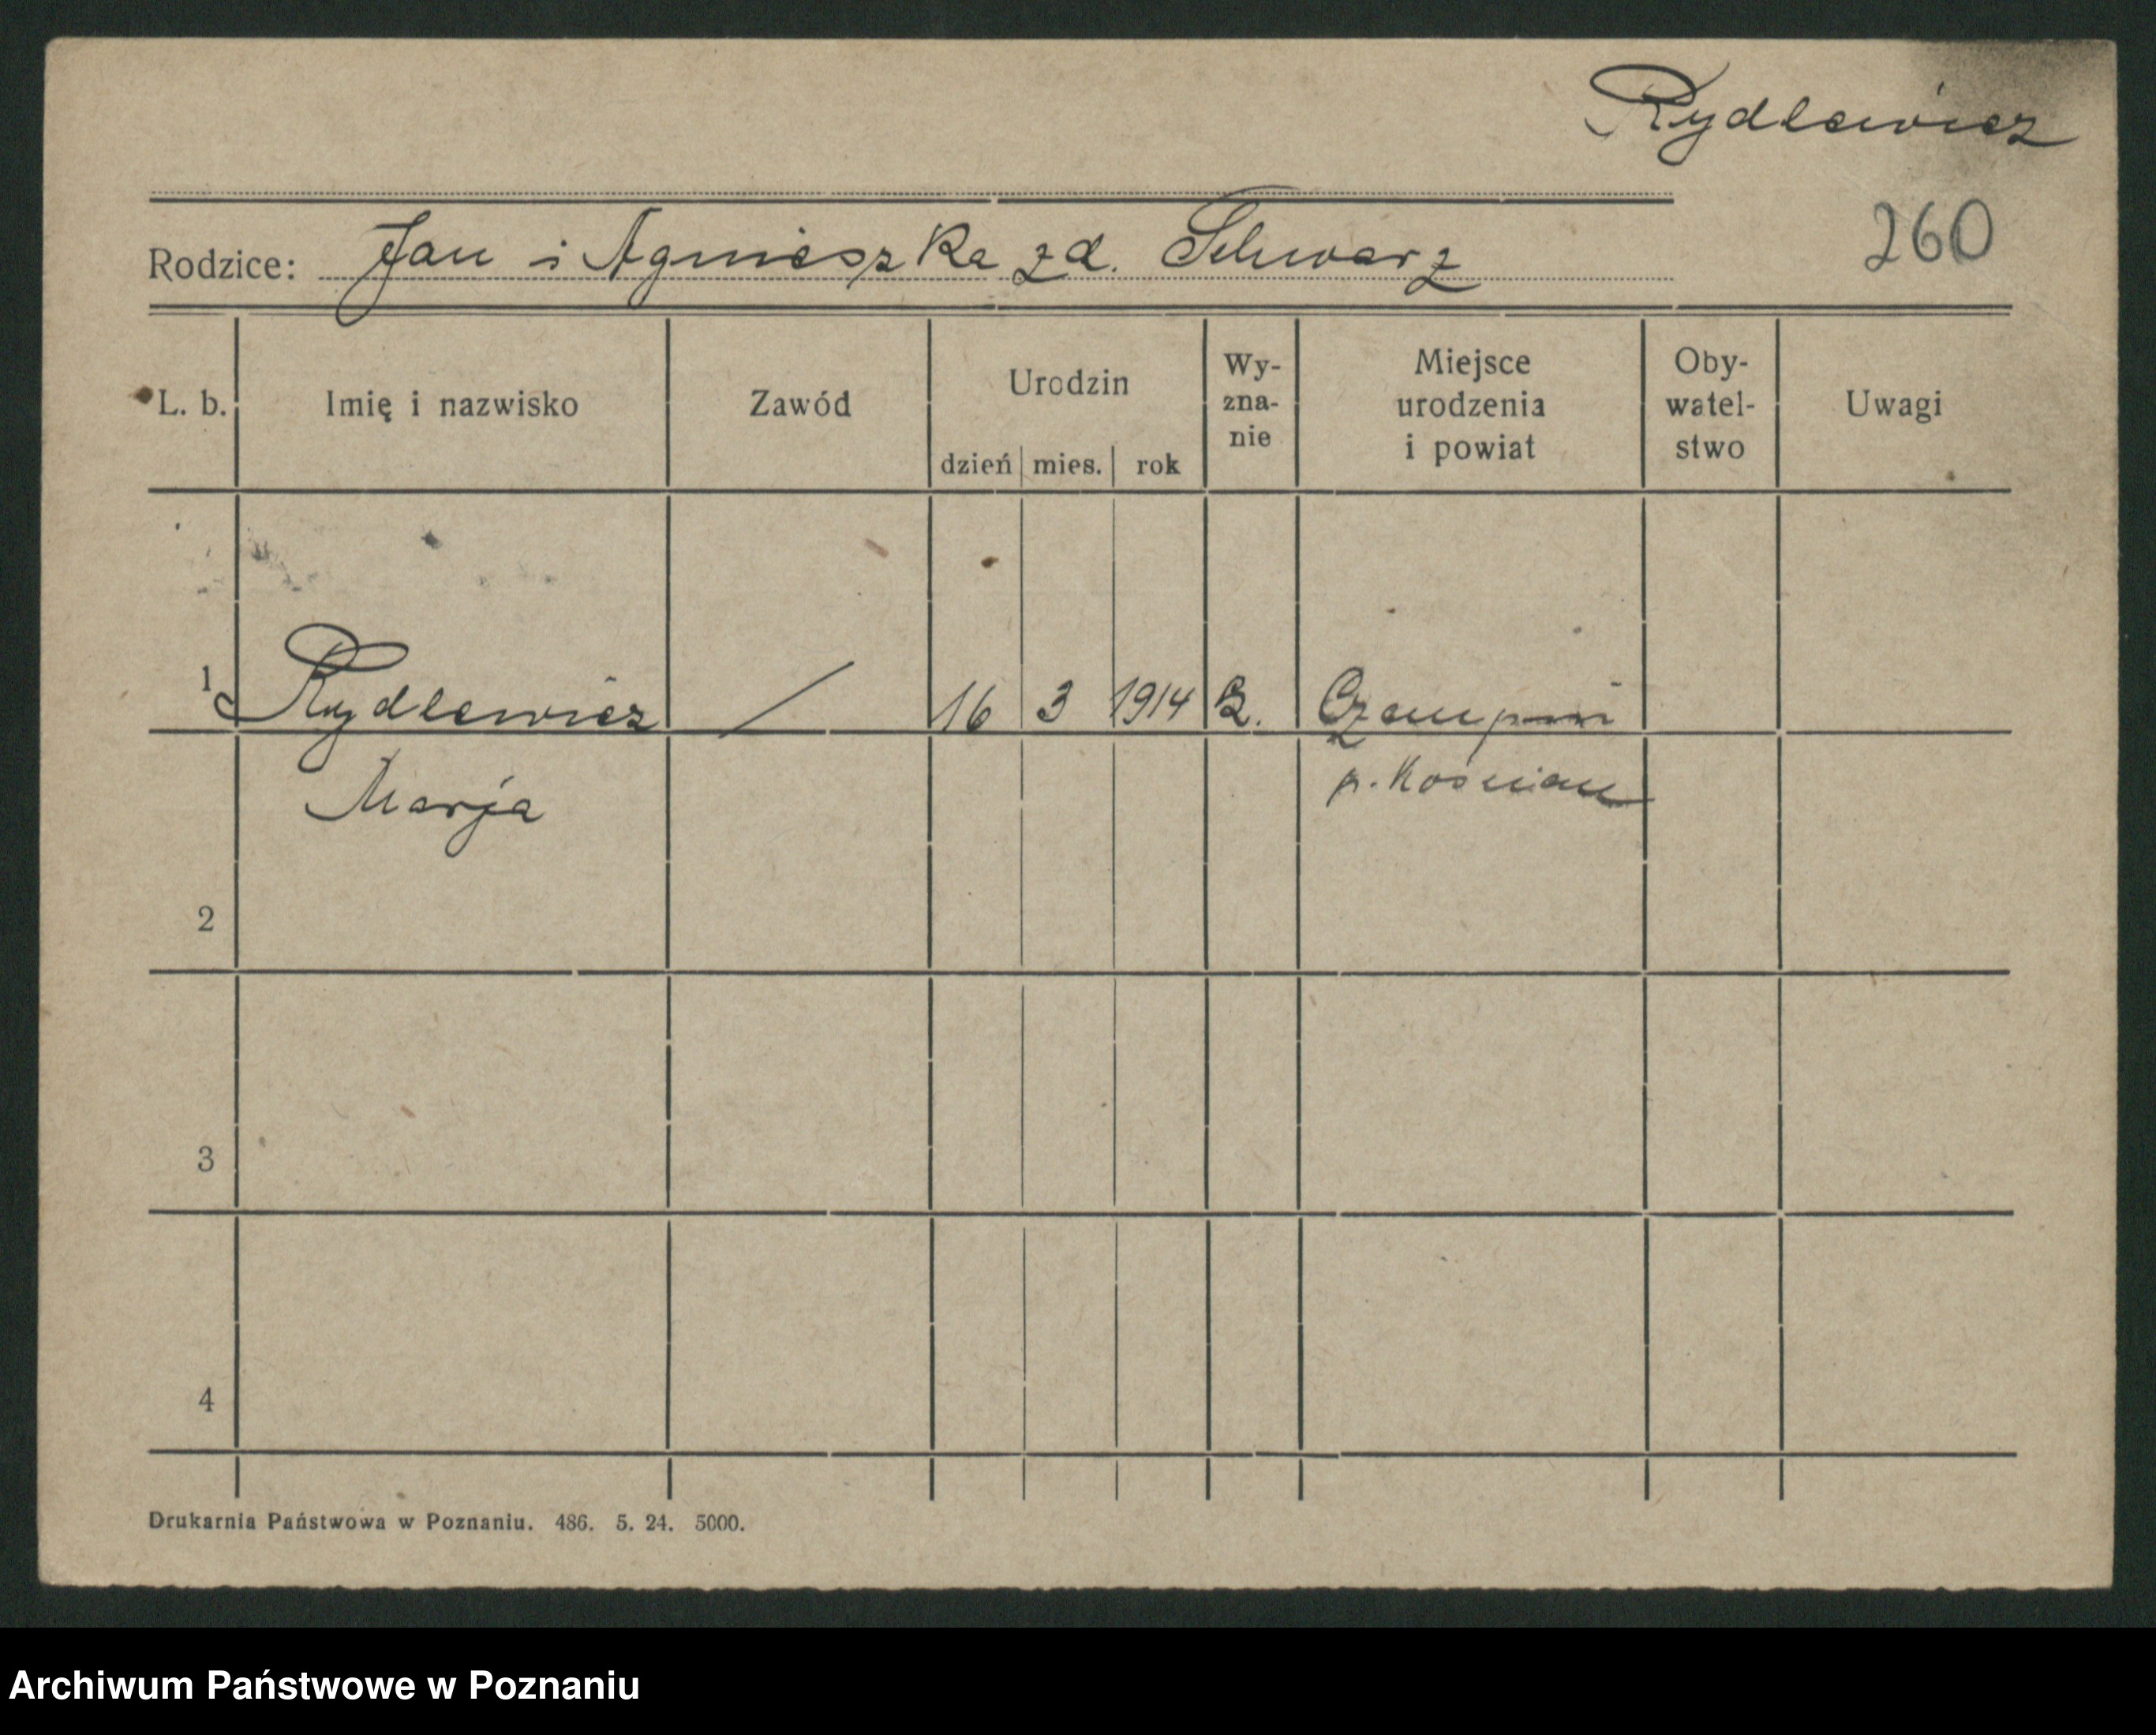 Rydlewicz
260
Rodzice: Jan i Agnieszka zd. Schwarz
L. b. Imię i nazwisko Zawód Urodzin dzień mies. rok Wy-zna-nie Miejsce urodzenia i powiat Oby-watel-stwo Uwagi
1 Rydlewicz / 16 3 1914 Czempiń
Marja p. Kościan
2
3
4
Drukarnia Państwowa w Poznaniu. 486. 5. 24. 5000.
Archiwum Państwowe w Poznaniu